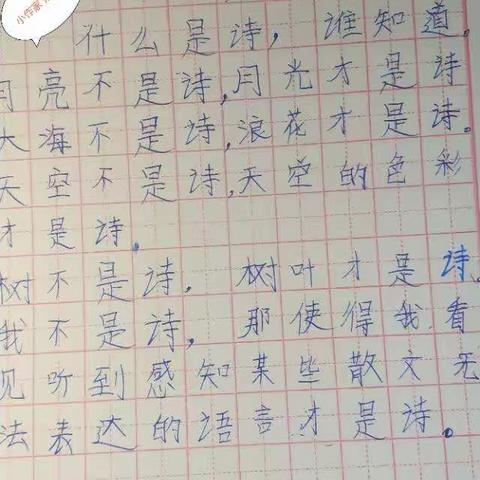 小作家
什么是诗，谁知道。
月亮不是诗，月光才是诗
大海不是诗，浪花才是诗。
天空不是诗，天空的色彩
才是诗。
树不是诗，树叶才是诗。
我不是诗，那使得我看
见听到感知某些散文无
法表达的语言才是诗。